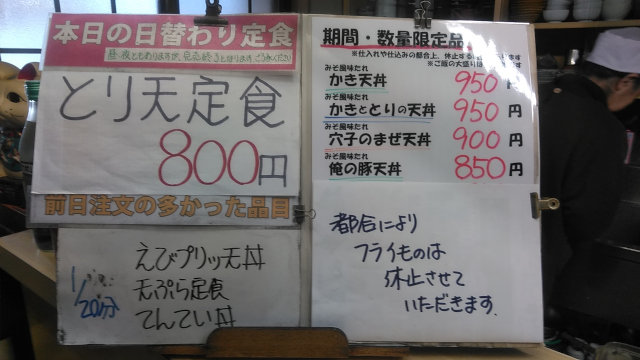 本日の日替わり定食
とり天定食
800円
前日注文の多かった品目
1/20分
えびプリッ天丼
天ぷら定食
てんてい丼
期間・数量限定品
※仕入れや仕込みの都合上、休止する
みそ風味たれ
かき天丼 950円
みそ風味たれ
かきととりの天丼 950円
みそ風味たれ
穴子のまぜ天丼 900円
みそ風味たれ
俺の豚天丼 850円
都合により
フライものは
休止させて
いただきます.